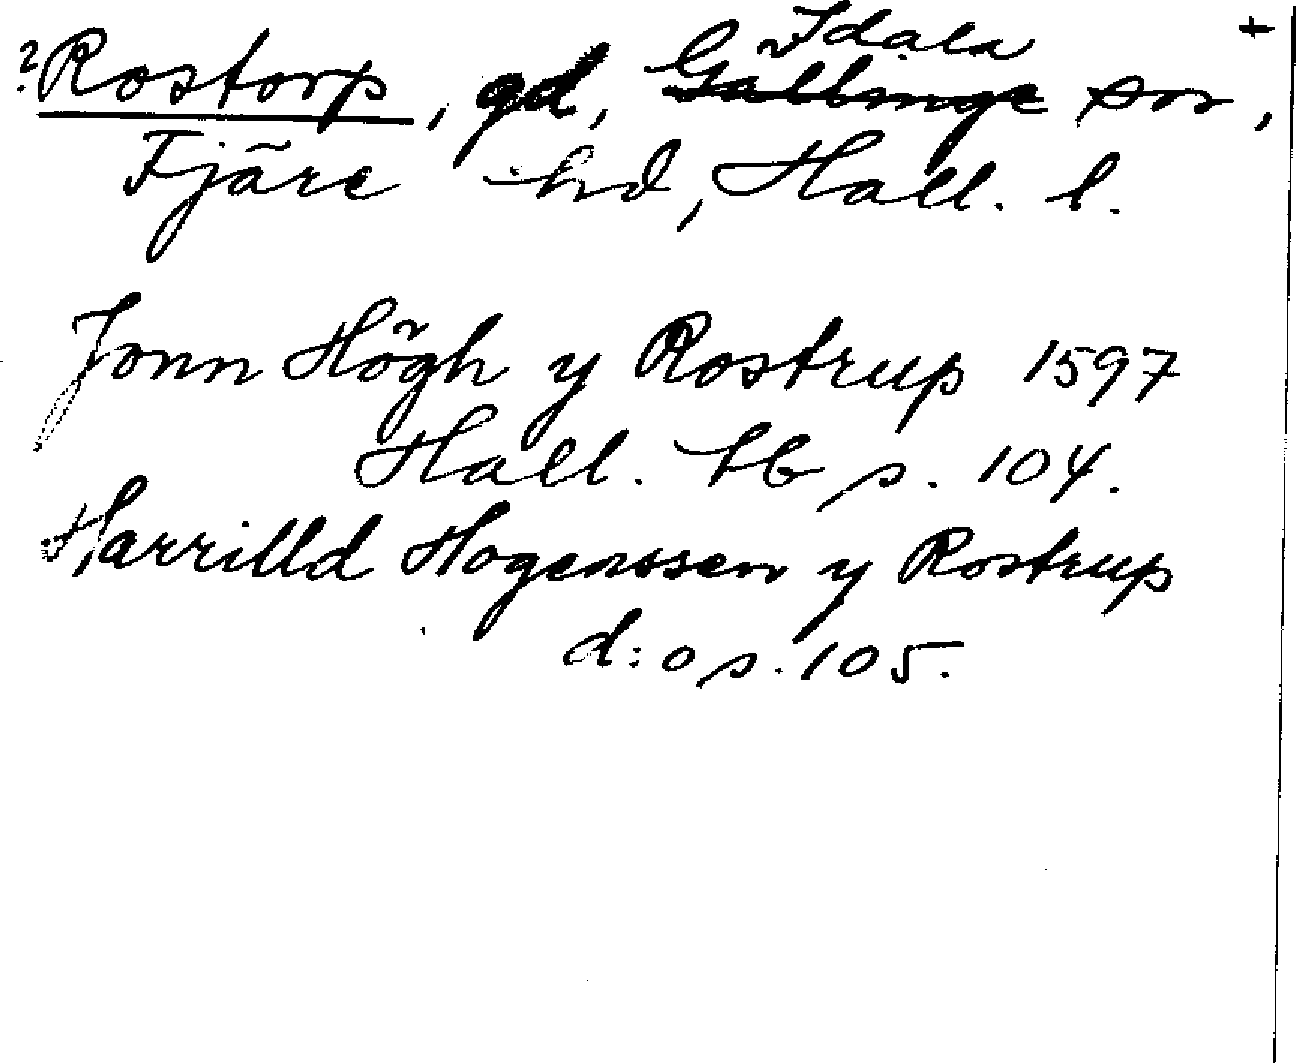 Idala +
?Rostorp, gd, Gällinge sn,
Fjäre hd, Hall. l.
Jonn Högh y Rostrup 1597
Hall. bb s. 104.
Harrilld Hogenssen y Rostrup
d:o s. 105.